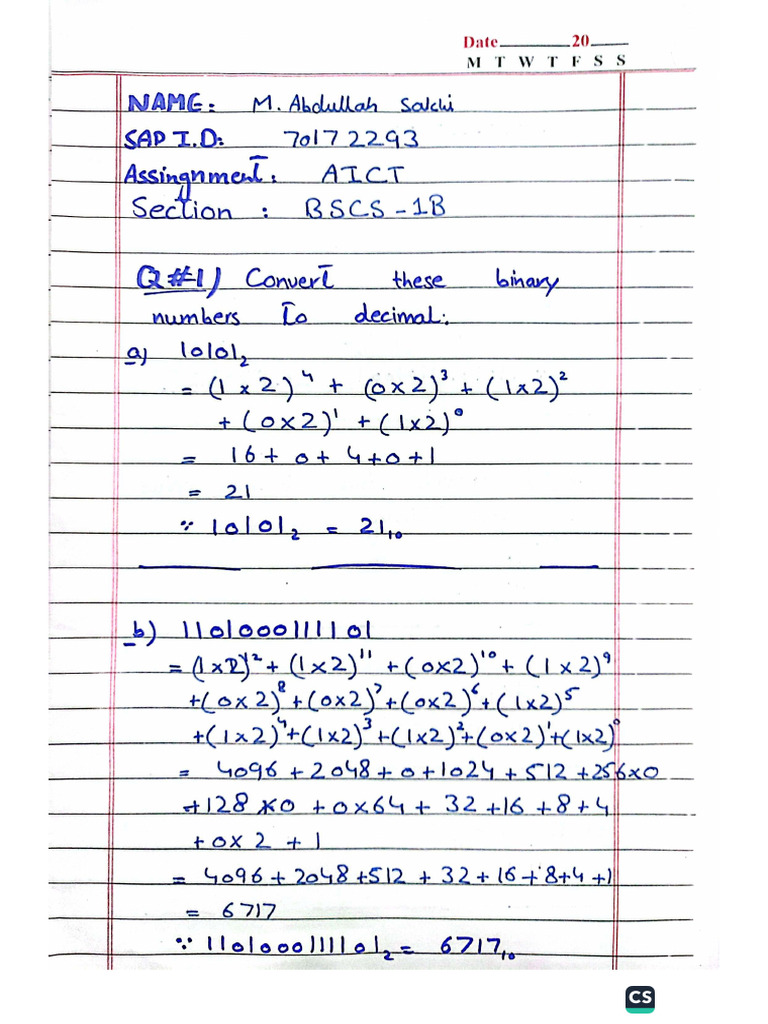 Date 20
M T W T F S S
NAME: M. Abdullah Sakhi
SAP I.D: 70172293
Assingnment: AICT
Section : BSCS-1B
Q#1) Convert these binary
numbers to decimal:
a) 10101₂
= (1x2)⁴ + (0x2)³ + (1x2)²
+ (0x2)¹ + (1x2)⁰
= 16 + 0 + 4 + 0 + 1
= 21
∵ 10101₂ = 21₁₀
b) 1101000111101
= (1x2)¹² + (1x2)¹¹ + (0x2)¹⁰ + (1x2)⁹
+(0x2)⁸ + (0x2)⁷ + (0x2)⁶ + (1x2)⁵
+(1x2)⁴ + (1x2)³ + (1x2)² + (0x2)¹ + (1x2)⁰
= 4096 + 2048 + 0 + 1024 + 512 + 256x0
+128x0 + 0x64 + 32 + 16 + 8 + 4
+ 0x2 + 1
= 4096 + 2048 + 512 + 32 + 16 + 8 + 4 + 1
= 6717
∵ 1101000111101₂ = 6717₁₀
CS